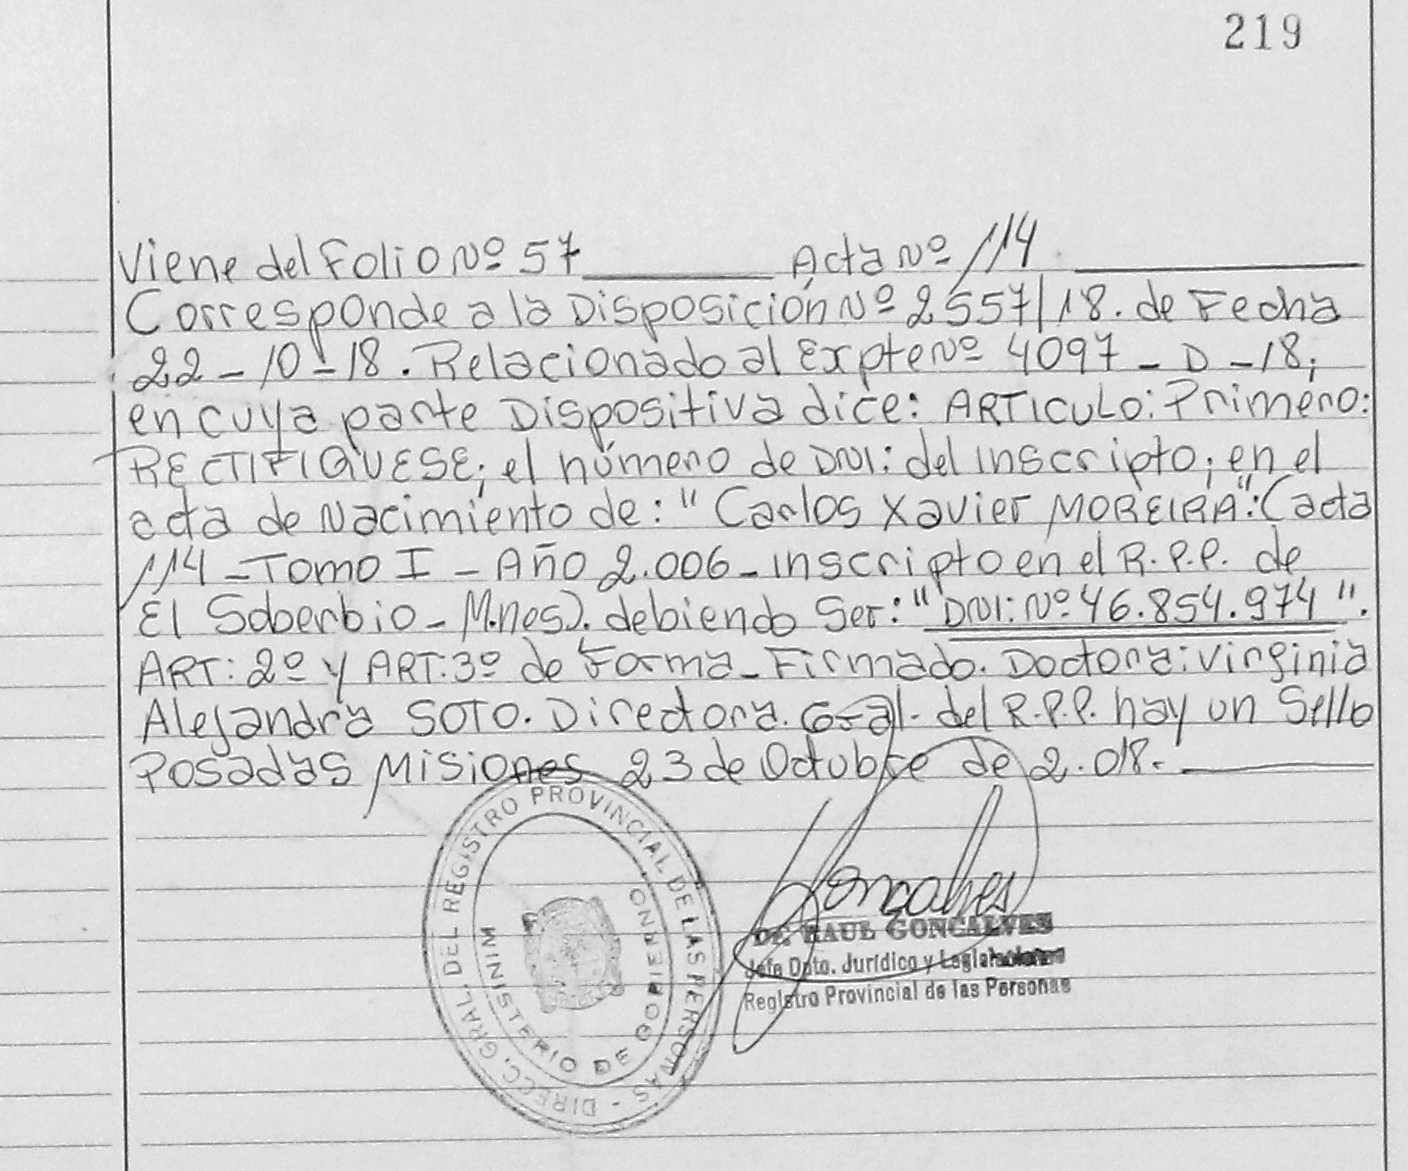 219
Viene del Folio Nº 57 ______ Acta Nº 114 ______
Corresponde a la Disposición Nº 2557/18. de Fecha
22-10-18. Relacionado al Expte Nº 4097-D-18;
en cuya parte Dispositiva dice: ARTICULO: Primero:
RECTIFIQUESE; el número de DNI: del inscripto; en el
acta de Nacimiento de: "Carlos Xavier MOREIRA": (acta
114-Tomo I-Año 2.006-inscripto en el R.P.P. de
El Soberbio-Mnes). debiendo Ser: "DNI: Nº 46.854.974".
ART: 2º y ART: 3º de Forma-Firmado. Doctora: Virginia
Alejandra SOTO. Directora. Gral. del R.P.P. hay un Sello
Posadas Misiones 23 de Octubre de 2.018.-
DIRECC. GRAL. DEL REGISTRO PROVINCIAL DE LAS PERSONAS -
MINISTERIO DE GOBIERNO
Goncalves
Dr. RAUL GONCALVES
Jefe Dpto. Jurídico y
Registro Provincial de las Personas